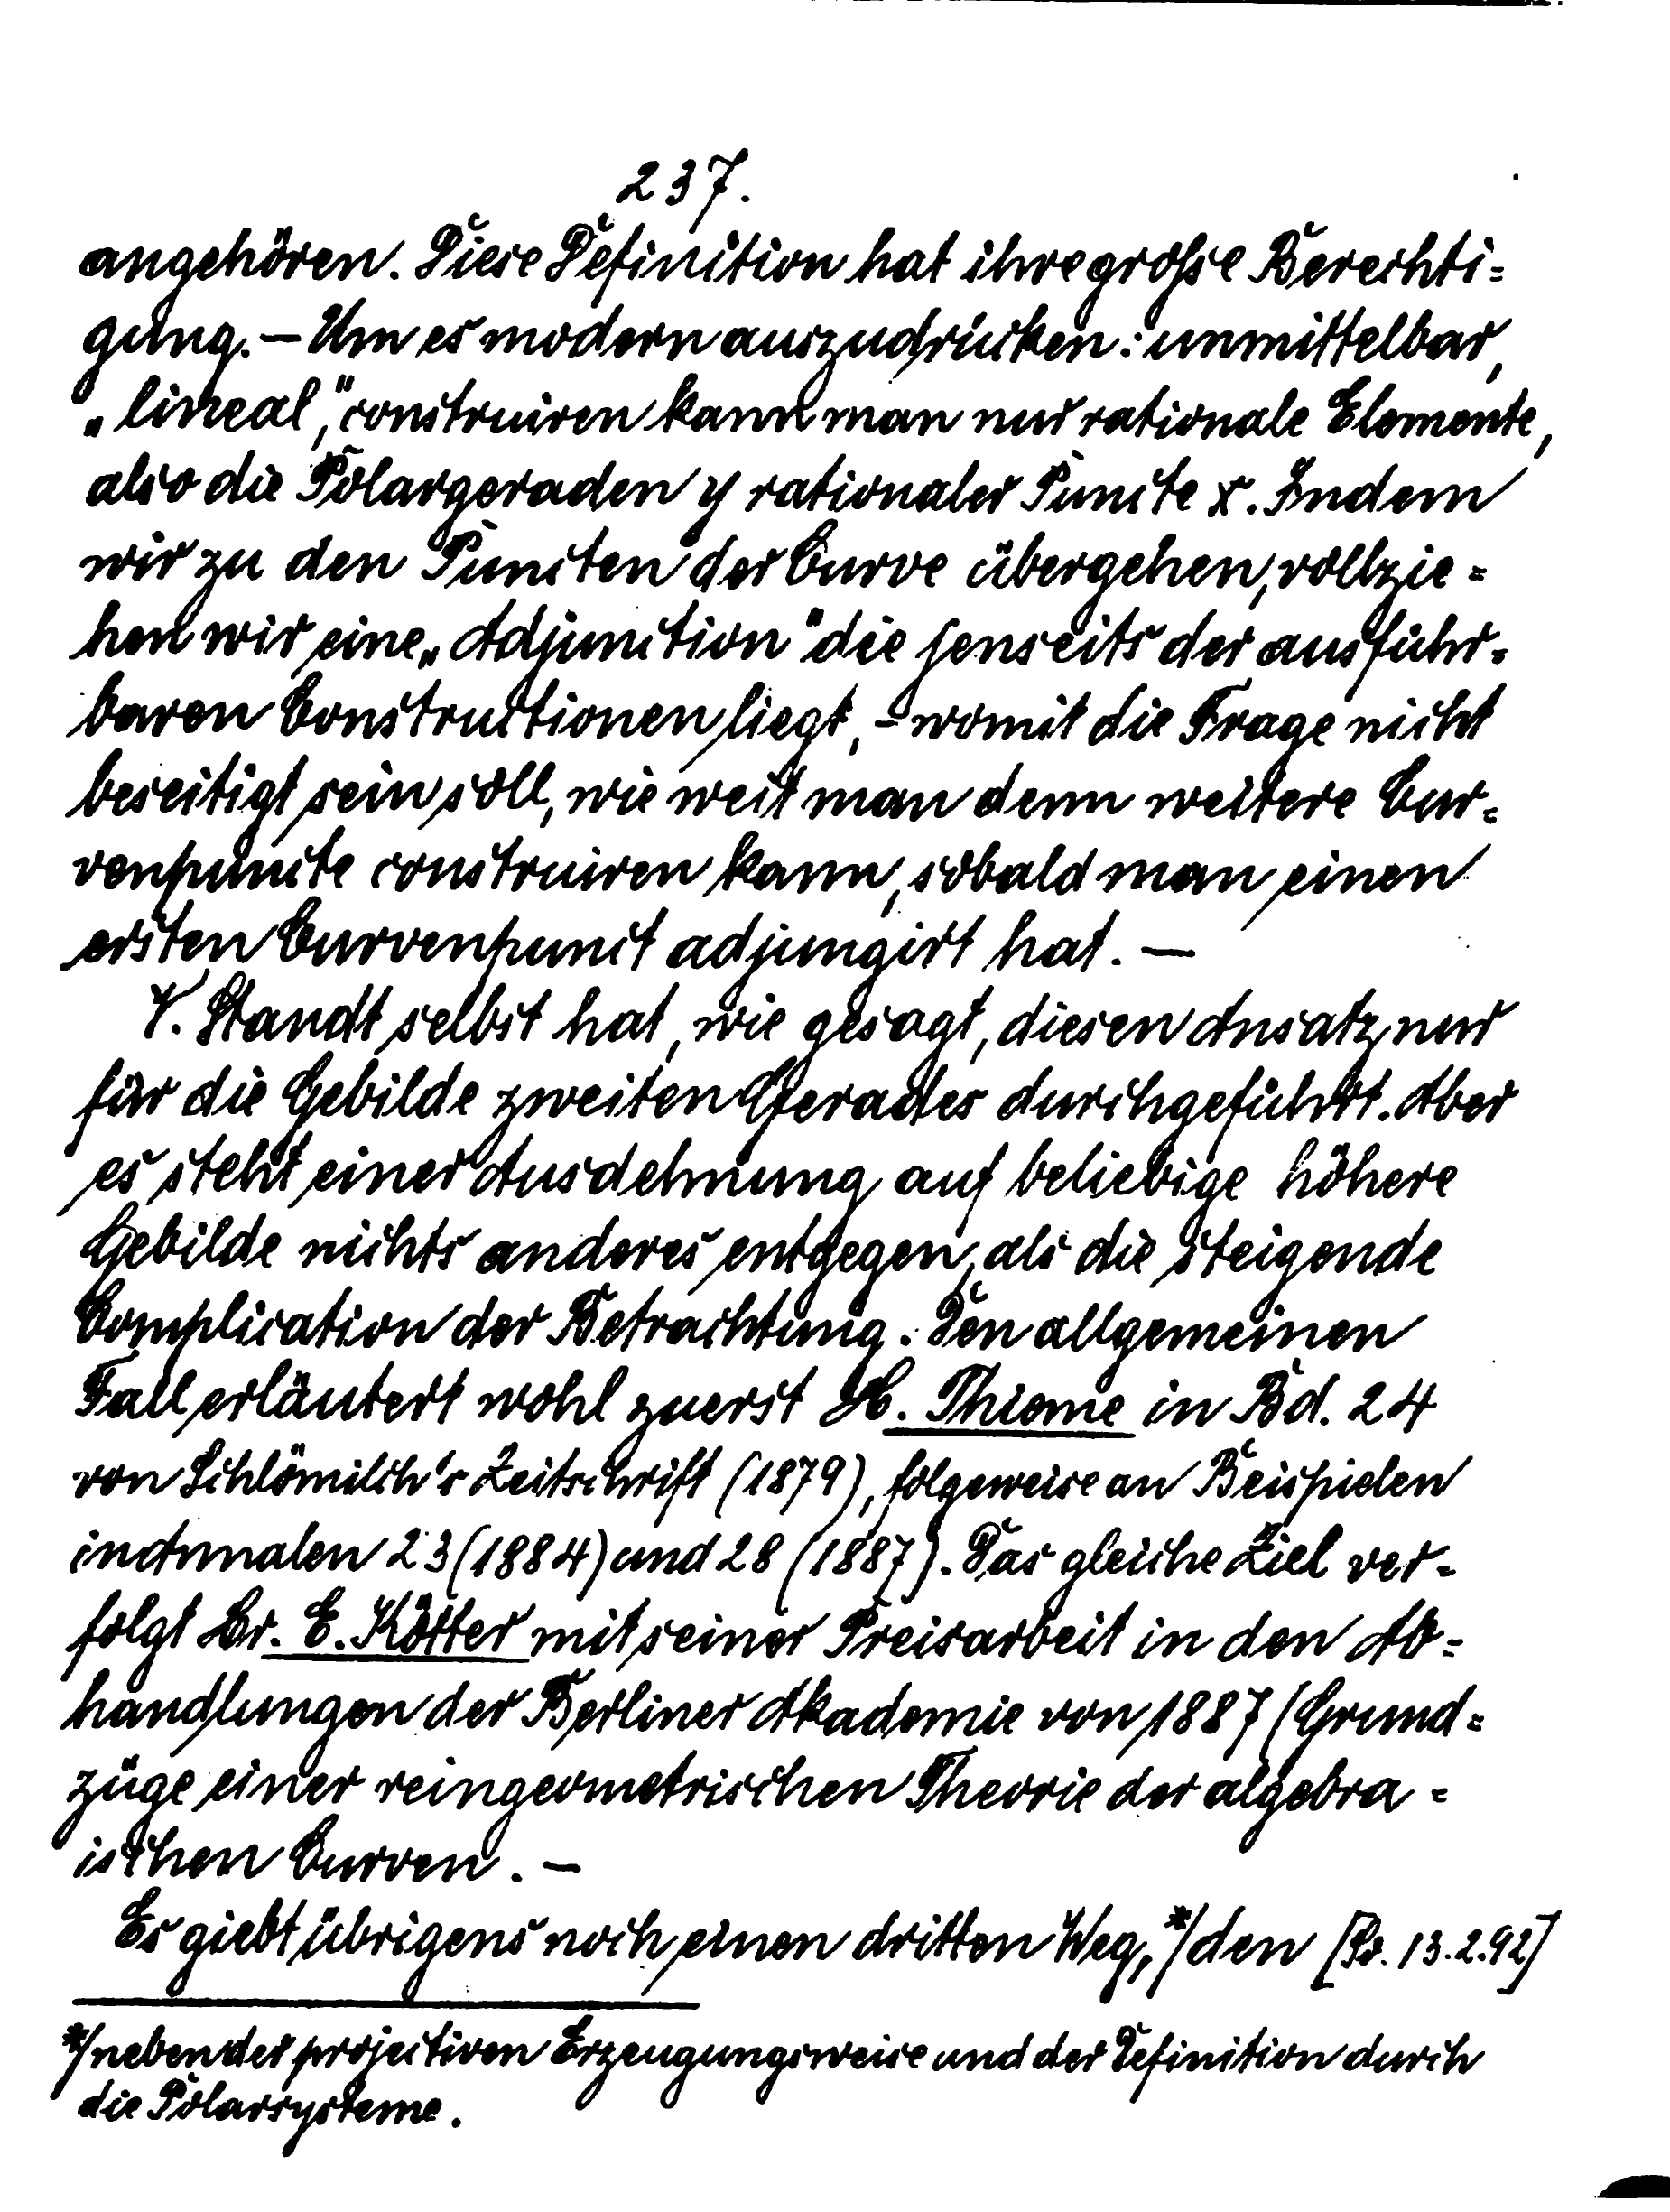 237.
angehören. Diese Definition hat ihre große Berechti=
gung. — Um es modern auszudrücken: unmittelbar,
„lineal", construiren kann man nur rationale Elemente,
also die Polargeraden y rationaler Puncte x. Indem
wir zu den Puncten der Curve übergehen, vollzie=
hen wir eine „Adjunction" die jenseits der ausführ=
baren Constructionen liegt, – womit die Frage nicht
beseitigt sein soll, wie weit man denn weitere Cur=
venpuncte construiren kann, sobald man einen
ersten Curvenpunct adjungirt hat. —
V. Staudt selbst hat, wie gesagt, diesen Ansatz nur
für die Gebilde zweiten Gerades durchgeführt. Aber
es steht einer Ausdehnung auf beliebige höhere
Gebilde nichts anderes entgegen, als die steigende
Complication der Betrachtung. Den allgemeinen
Fall erläutert wohl zuerst H. Thieme in Bd. 24
von Schlömilch's Zeitschrift (1879), folgeweise an Beispielen
in Annalen 23 (1884) und 28 (1887). Das gleiche Ziel ver=
folgt Hr. E. Kötter mit seiner Preisarbeit in den Ab=
handlungen der Berliner Akademie von 1887 (Grund=
züge einer reingeometrischen Theorie der algebra=
ischen Curven. —
Es giebt übrigens noch einen dritten Weg, *) den [So. 13.2.92]
*) neben der projectiven Erzeugungsweise und der Definition durch
die Polarsysteme.